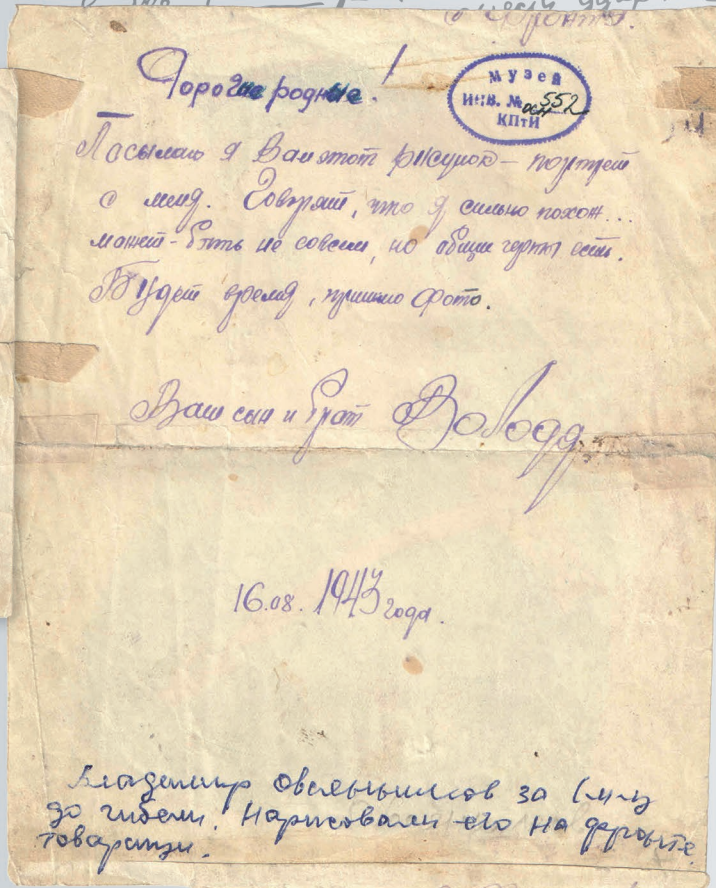 с фронта.
Дорогие родные!
Музей
ИНВ. № осн 552
КПТИ
Посылаю я Вам этот рисунок – портрет
с меня. Говорят, что я сильно похож...
может-быть не совсем, но общие черты есть.
Будет время, пришлю фото.
Ваш сын и брат Володя
16.08. 1943 года.
Владимир Овсянников за 1 м-ц
до гибели. Нарисовали его на фронте
товарищи.